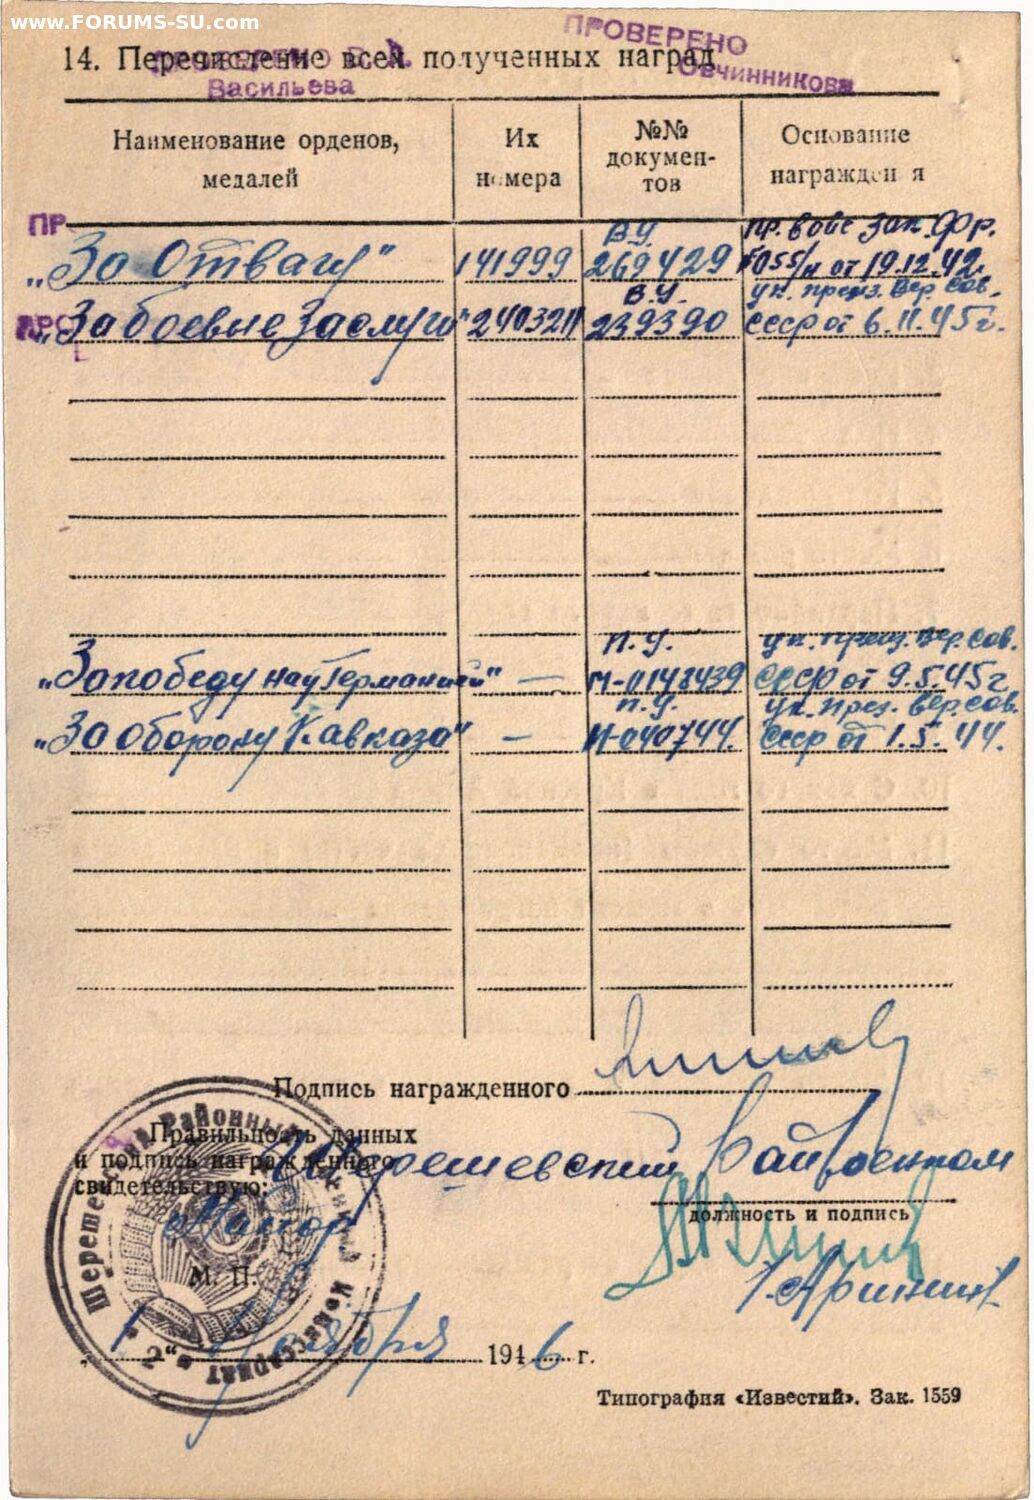 www.FORUMS-SU.com
ПРОВЕРЕНО
Васильева
ПРОВЕРЕНО
Овчинникова
14. Перечисление всех полученных наград
Наименование орденов, медалей
Их номера
№№ документов
Основание награждения
ПР
„За Отвагу"
141999
В.У. 269429
пр. вове Зак. Фр. от 19.12.42.
„За боевые заслуги"
2403211
В.У. 239390
ук. през. Вер. Сов. СССР от 6.11.45г.
„За победу над Германией"
—
П.У. 0148439
ук. през. Вер. Сов. СССР от 9.5.45г
„За оборону Кавказа"
—
П.У. 040744.
ук. През. Вер. Сов. СССР от 1.5.44.
Подпись награжденного
Правильность данных
и подпись награжденного
свидетельствую:
Шерешевский Райвоенком
должность и подпись
Майор
М. П.
Районный
Комиссариат
„ 1 " Ноября 1946 г.
Типография «Известий». Зак. 1559